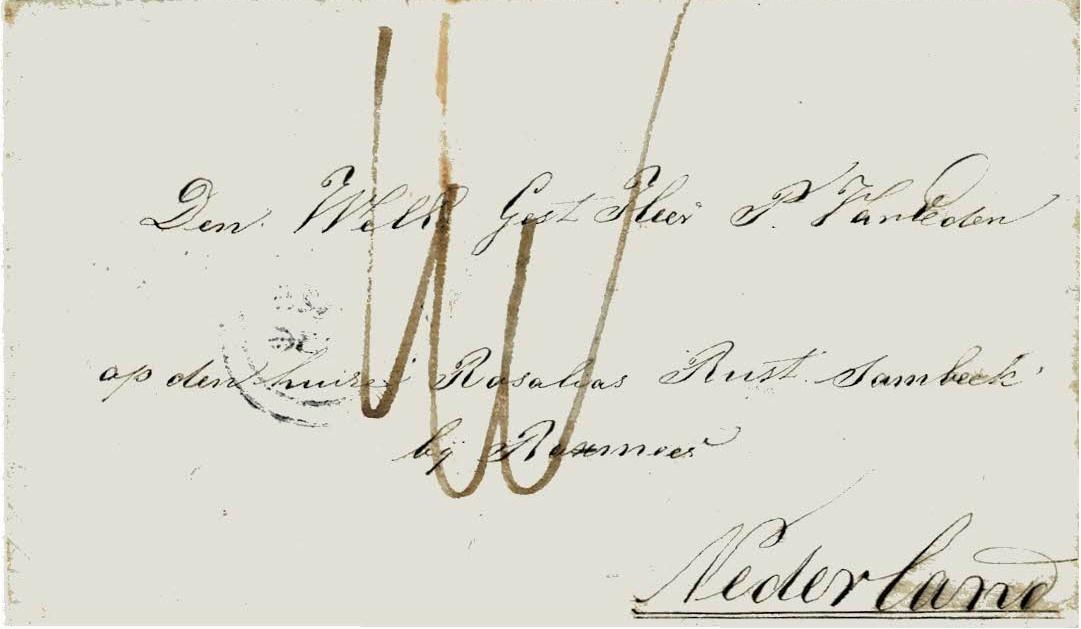 Den Well Gest Heer P Van Eeden
op den huize Rosalias Rust Sambeek
by Boxmeer
Nederland